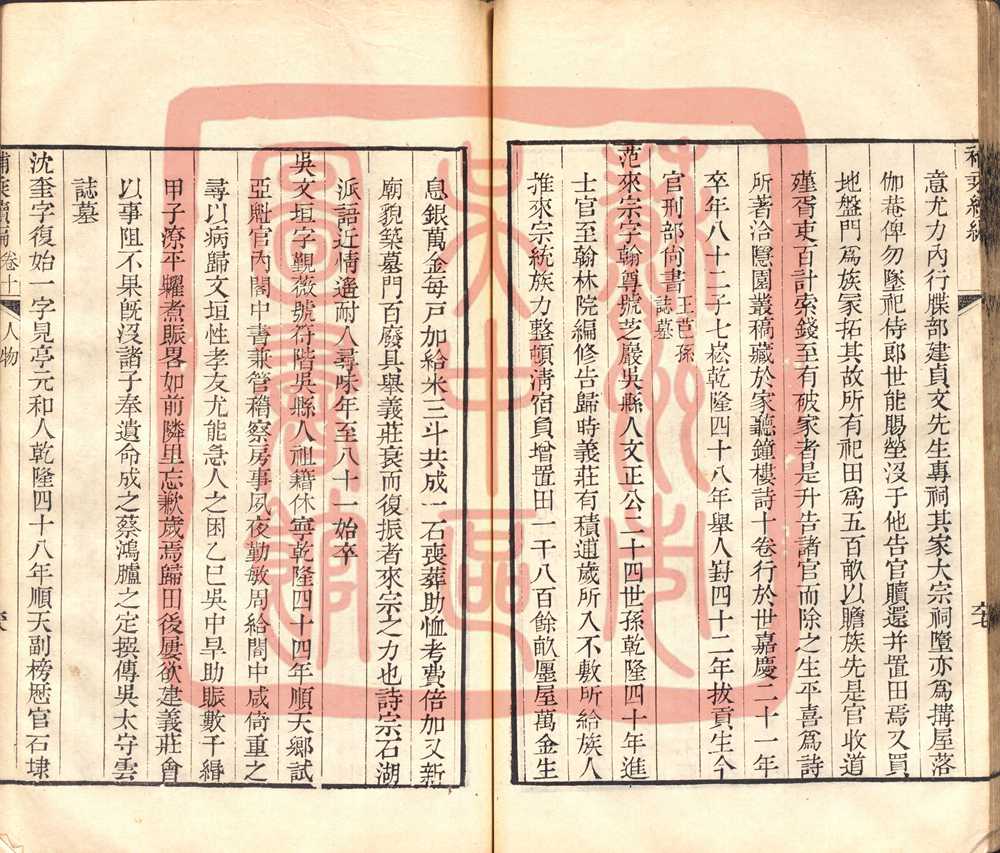 意尤力內行牒部建貞文先生專祠其家大宗祠墮亦爲搆屋落
伽菴俾勿墜祀侍郎世能賜塋沒于他告官贖還并置田焉又買
地盤門爲族冢拓其故所有祀田爲五百畝以贍族先是官收道
殣胥吏百計索錢至有破家者是升告諸官而除之生平喜爲詩
所著洽隱園叢稿藏於家聽鐘樓詩十卷行於世嘉慶二十一年
卒年八十二子七崧乾隆四十八年舉人崶四十二年拔貢生今
官刑部尙書王芑孫誌墓
范來宗字翰尊號芝巖吳縣人文正公二十四世孫乾隆四十年進
士官至翰林院編修告歸時義莊有積逋歲所入不敷所給族人
推來宗統族力整頓淸宿負增置田一千八百餘畝廛屋萬金生
息銀萬金每戸加給米三斗共成一石喪葬助恤老費倍加又新
廟貌築墓門百廢具舉義莊衰而復振者來宗之力也詩宗石湖
派語近情遙耐人尋味年至八十一始卒
吳文垣字觐薇號符階吳縣人祖籍休寧乾隆四十四年順天鄉試
亞魁官內閣中書兼管稽察房事夙夜勤敏周給閣中咸倚重之
尋以病歸文垣性孝友尤能急人之困乙巳吳中旱助賑數千緡
甲子潦平糶煮賑畧如前隣里忘歉歲焉歸田後屢欲建義莊會
以事阻不果旣沒諸子奉遺命成之蔡鴻臚之定撰傳吳太守雲
誌墓
沈奎字復始一字見亭元和人乾隆四十八年順天副榜歷官石埭
卷十 人物
蘇州市吳中區圖書館